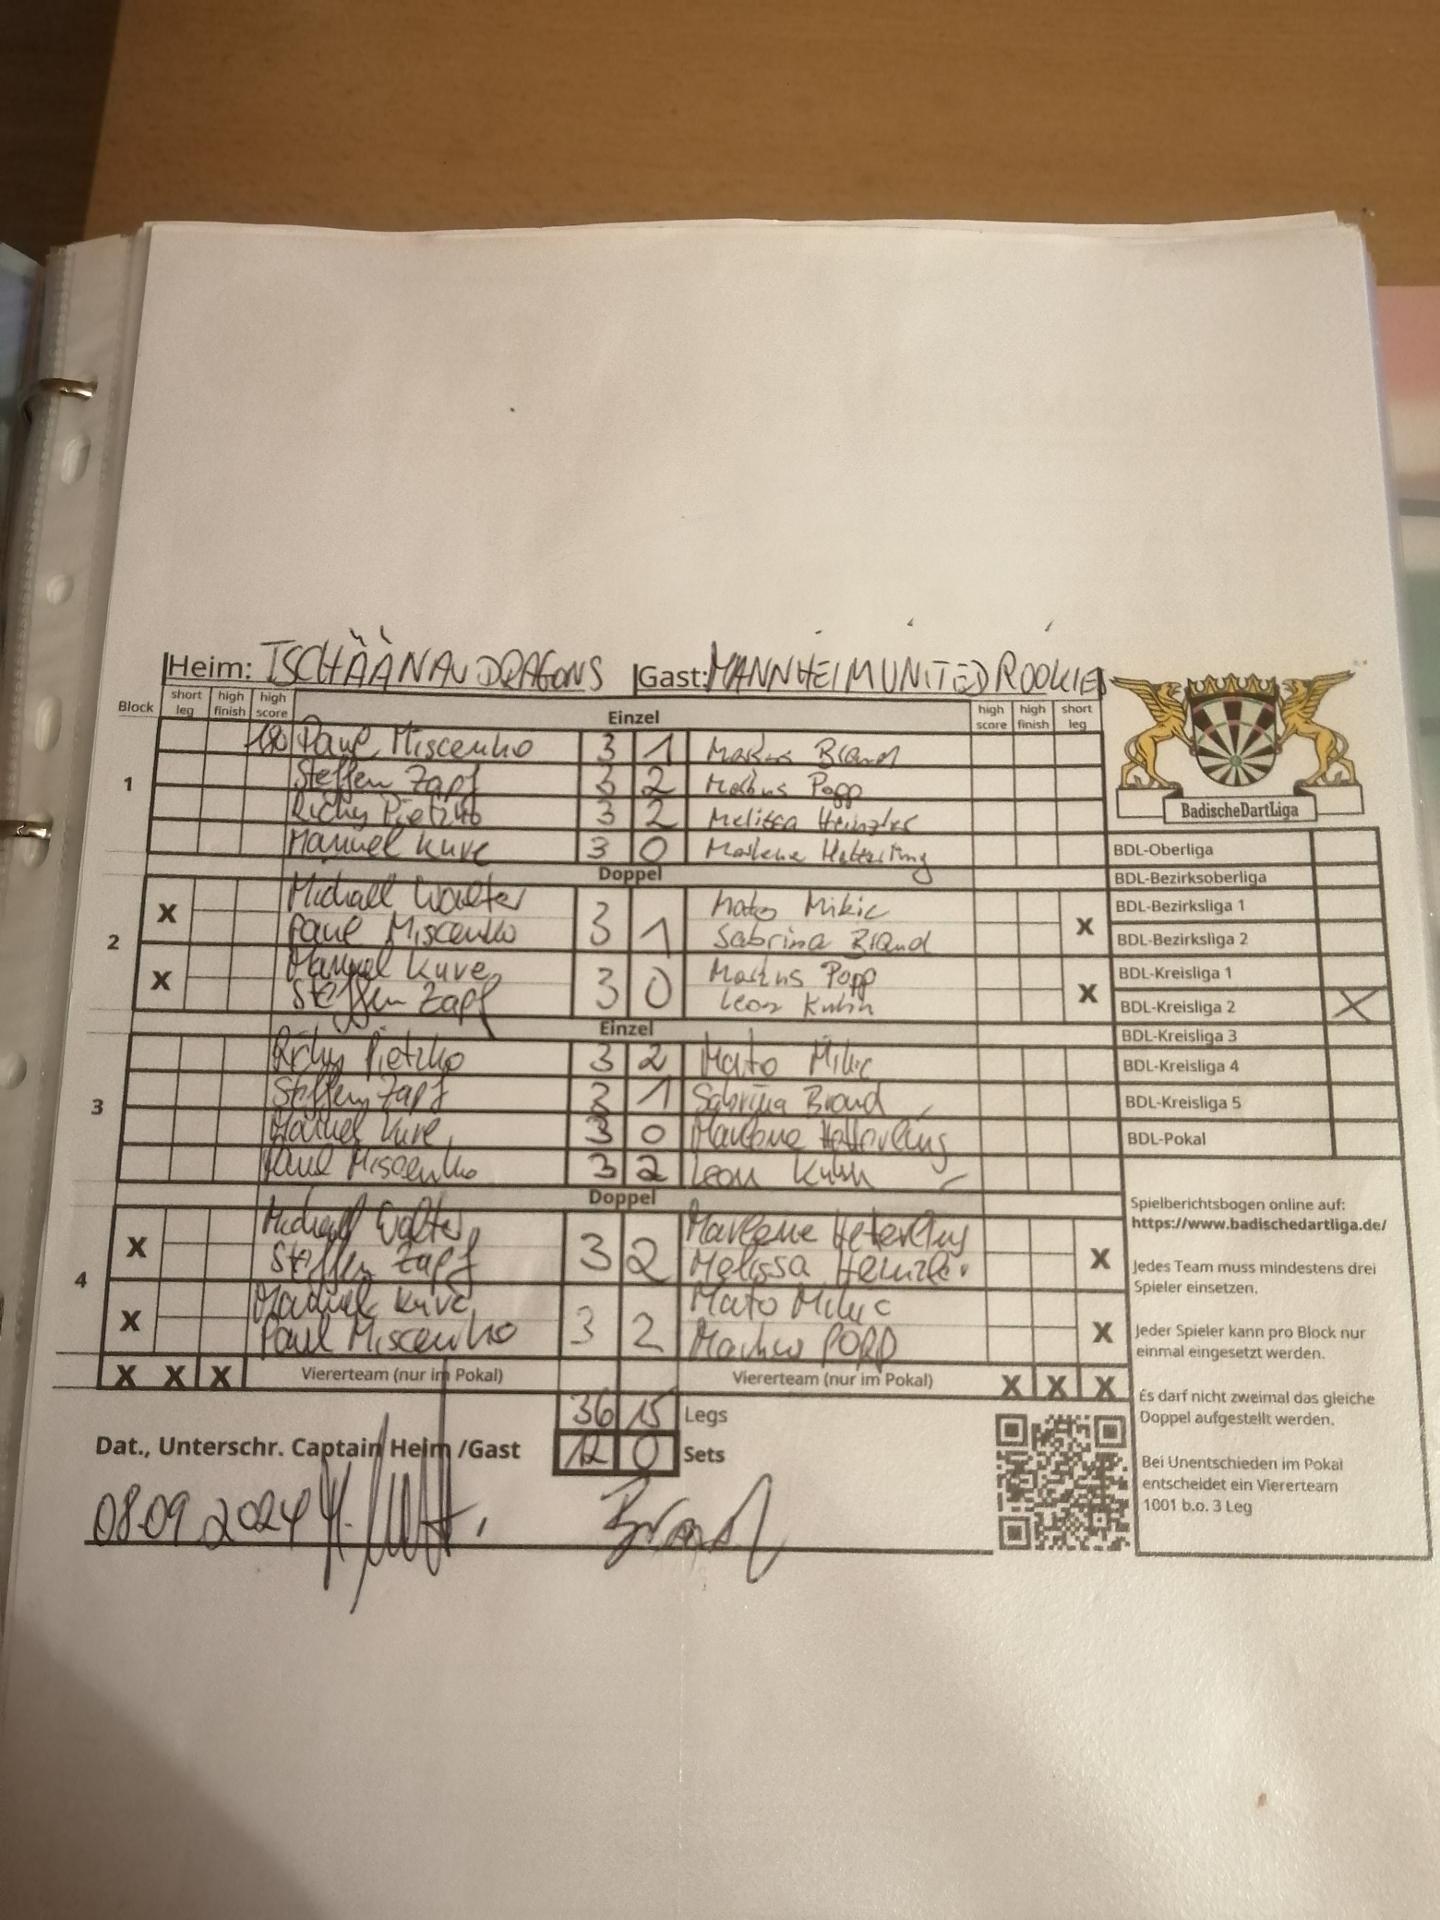 Heim: TSCHÄÄNAU DRAGONS Gast: MANNHEIM UNITED ROOKIES
Block short leg high finish high score Einzel high score high finish short leg
1
180 Paul Miscenko 3 1 Markus Brand
Steffen Zapf 3 2 Markus Popp
Richy Pietzko 3 2 Melissa Heinzler
Manuel Kurc 3 0 Marlene Hetterling
Doppel
2
X Michael Walter 3 1 Mato Mikic X
Paul Miscenko Sabrina Brand
X Manuel Kurc 3 0 Markus Popp X
Steffen Zapf Leon Kuhn
Einzel
3
Richy Pietzko 3 2 Mato Mikic
Steffen Zapf 3 1 Sabrina Brand
Manuel Kurc 3 0 Marlene Hetterling
Paul Miscenko 3 2 Leon Kuhn
Doppel
4
X Michael Walter 3 2 Marlene Heterling X
Steffen Zapf Melissa Heinzler
X Manuel Kurc 3 2 Mato Mikic X
Paul Miscenko Markus POPP
X X X Viererteam (nur im Pokal) Viererteam (nur im Pokal) X X X
36 15 Legs
12 0 Sets
Dat., Unterschr. Captain Heim /Gast
08.09.2024 Brand
BadischeDartLiga
BDL-Oberliga
BDL-Bezirksoberliga
BDL-Bezirksliga 1
BDL-Bezirksliga 2
BDL-Kreisliga 1
BDL-Kreisliga 2 X
BDL-Kreisliga 3
BDL-Kreisliga 4
BDL-Kreisliga 5
BDL-Pokal
Spielberichtsbogen online auf:
https://www.badischedartliga.de/
Jedes Team muss mindestens drei
Spieler einsetzen.
Jeder Spieler kann pro Block nur
einmal eingesetzt werden.
Es darf nicht zweimal das gleiche
Doppel aufgestellt werden.
Bei Unentschieden im Pokal
entscheidet ein Viererteam
1001 b.o. 3 Leg